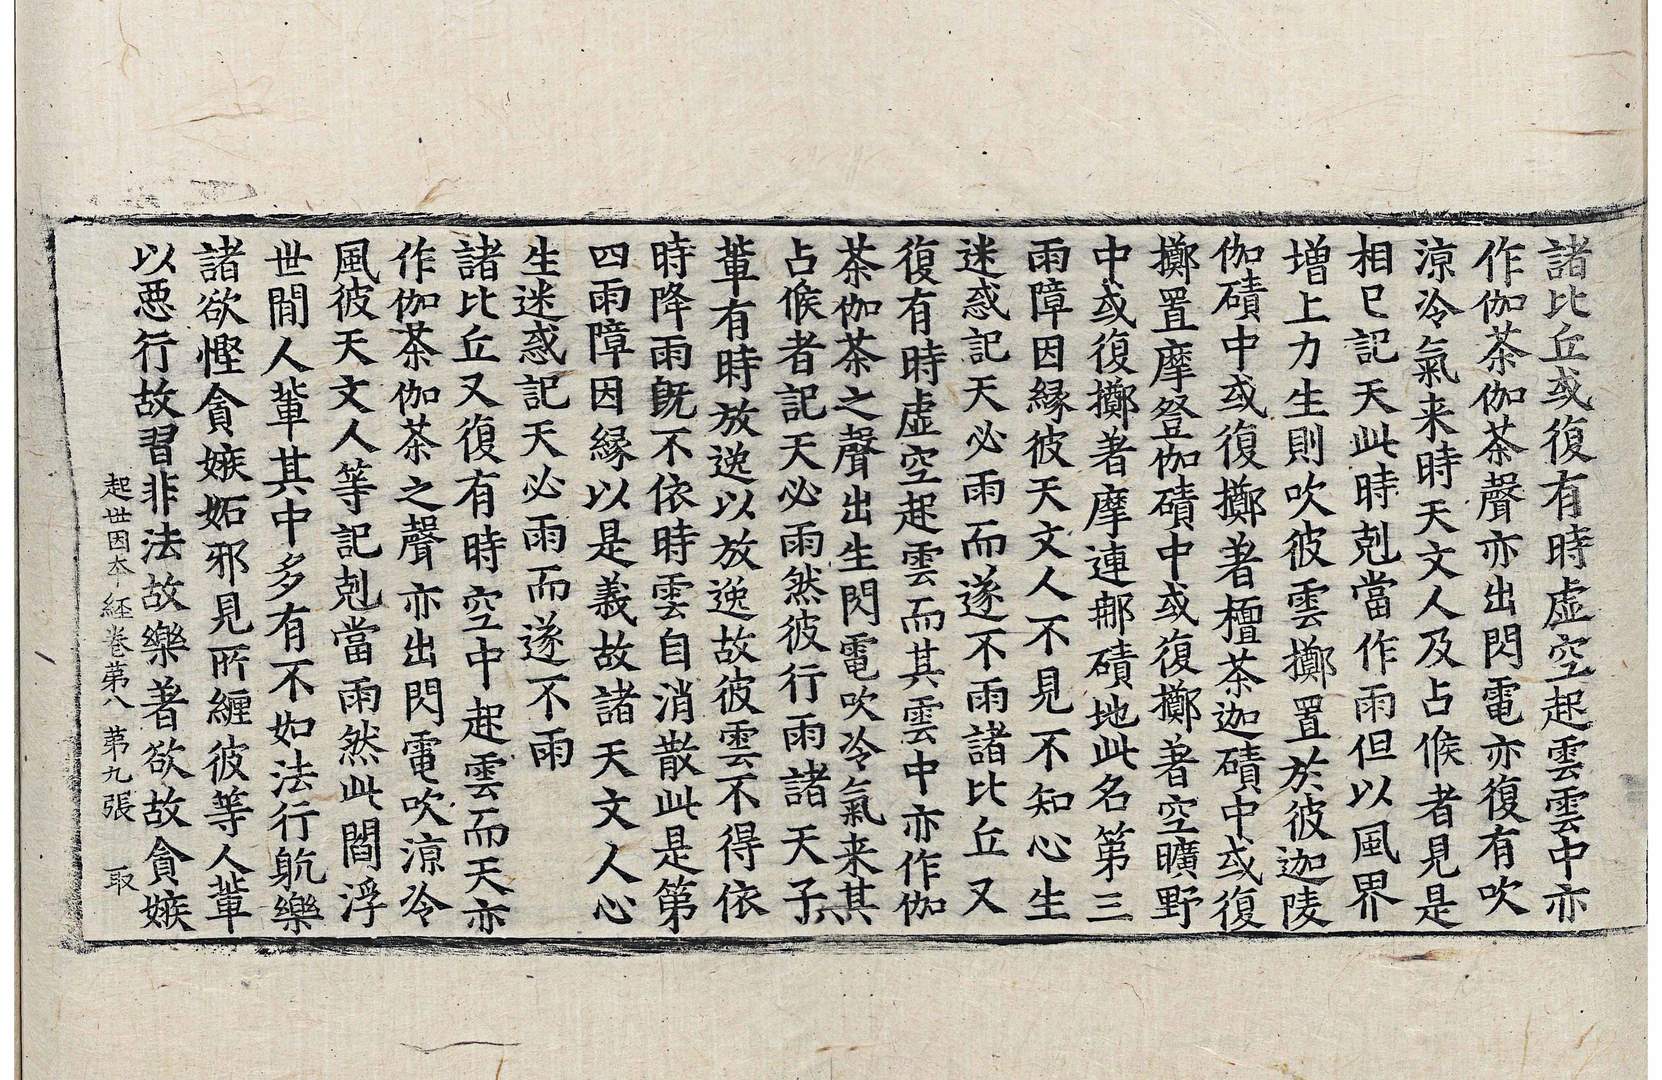 諸比丘或復有時虛空起雲雲中亦
作伽茶伽茶聲亦出閃電亦復有吹
涼冷氣来時天文人及占候者見是
相已記天此時剋當作雨但以風界
增上力生則吹彼雲擲置於彼迦陵
伽磧中或復擲著檀茶迦磧中或復
擲置摩登伽磧中或復擲著空曠野
中或復擲著摩連那磧地此名第三
雨障因緣彼天文人不見不知心生
迷惑記天必雨而遂不雨諸比丘又
復有時虛空起雲而其雲中亦作伽
茶伽茶之聲出生閃電吹冷氣来其
占候者記天必雨然彼行雨諸天子
輩有時放逸以放逸故彼雲不得依
時降雨旣不依時雲自消散此是第
四雨障因緣以是義故諸天文人心
生迷惑記天必雨而遂不雨
諸比丘又復有時空中起雲而天亦
作伽茶伽茶之聲亦出閃電吹涼冷
風彼天文人等記剋當雨然此閻浮
世間人輩其中多有不如法行躭樂
諸欲慳貪嫉妬邪見所纏彼等人輩
以惡行故習非法故樂著欲故貪嫉
起世因本經卷第八 第九張 取